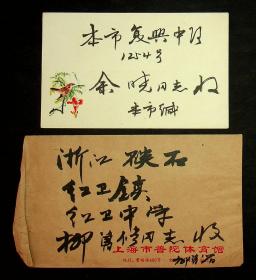 本市复兴中路
1254号
余晓同志收
本市缄
浙江硖石
红卫镇
红卫中学
柳同志收
上海市普陀体育馆